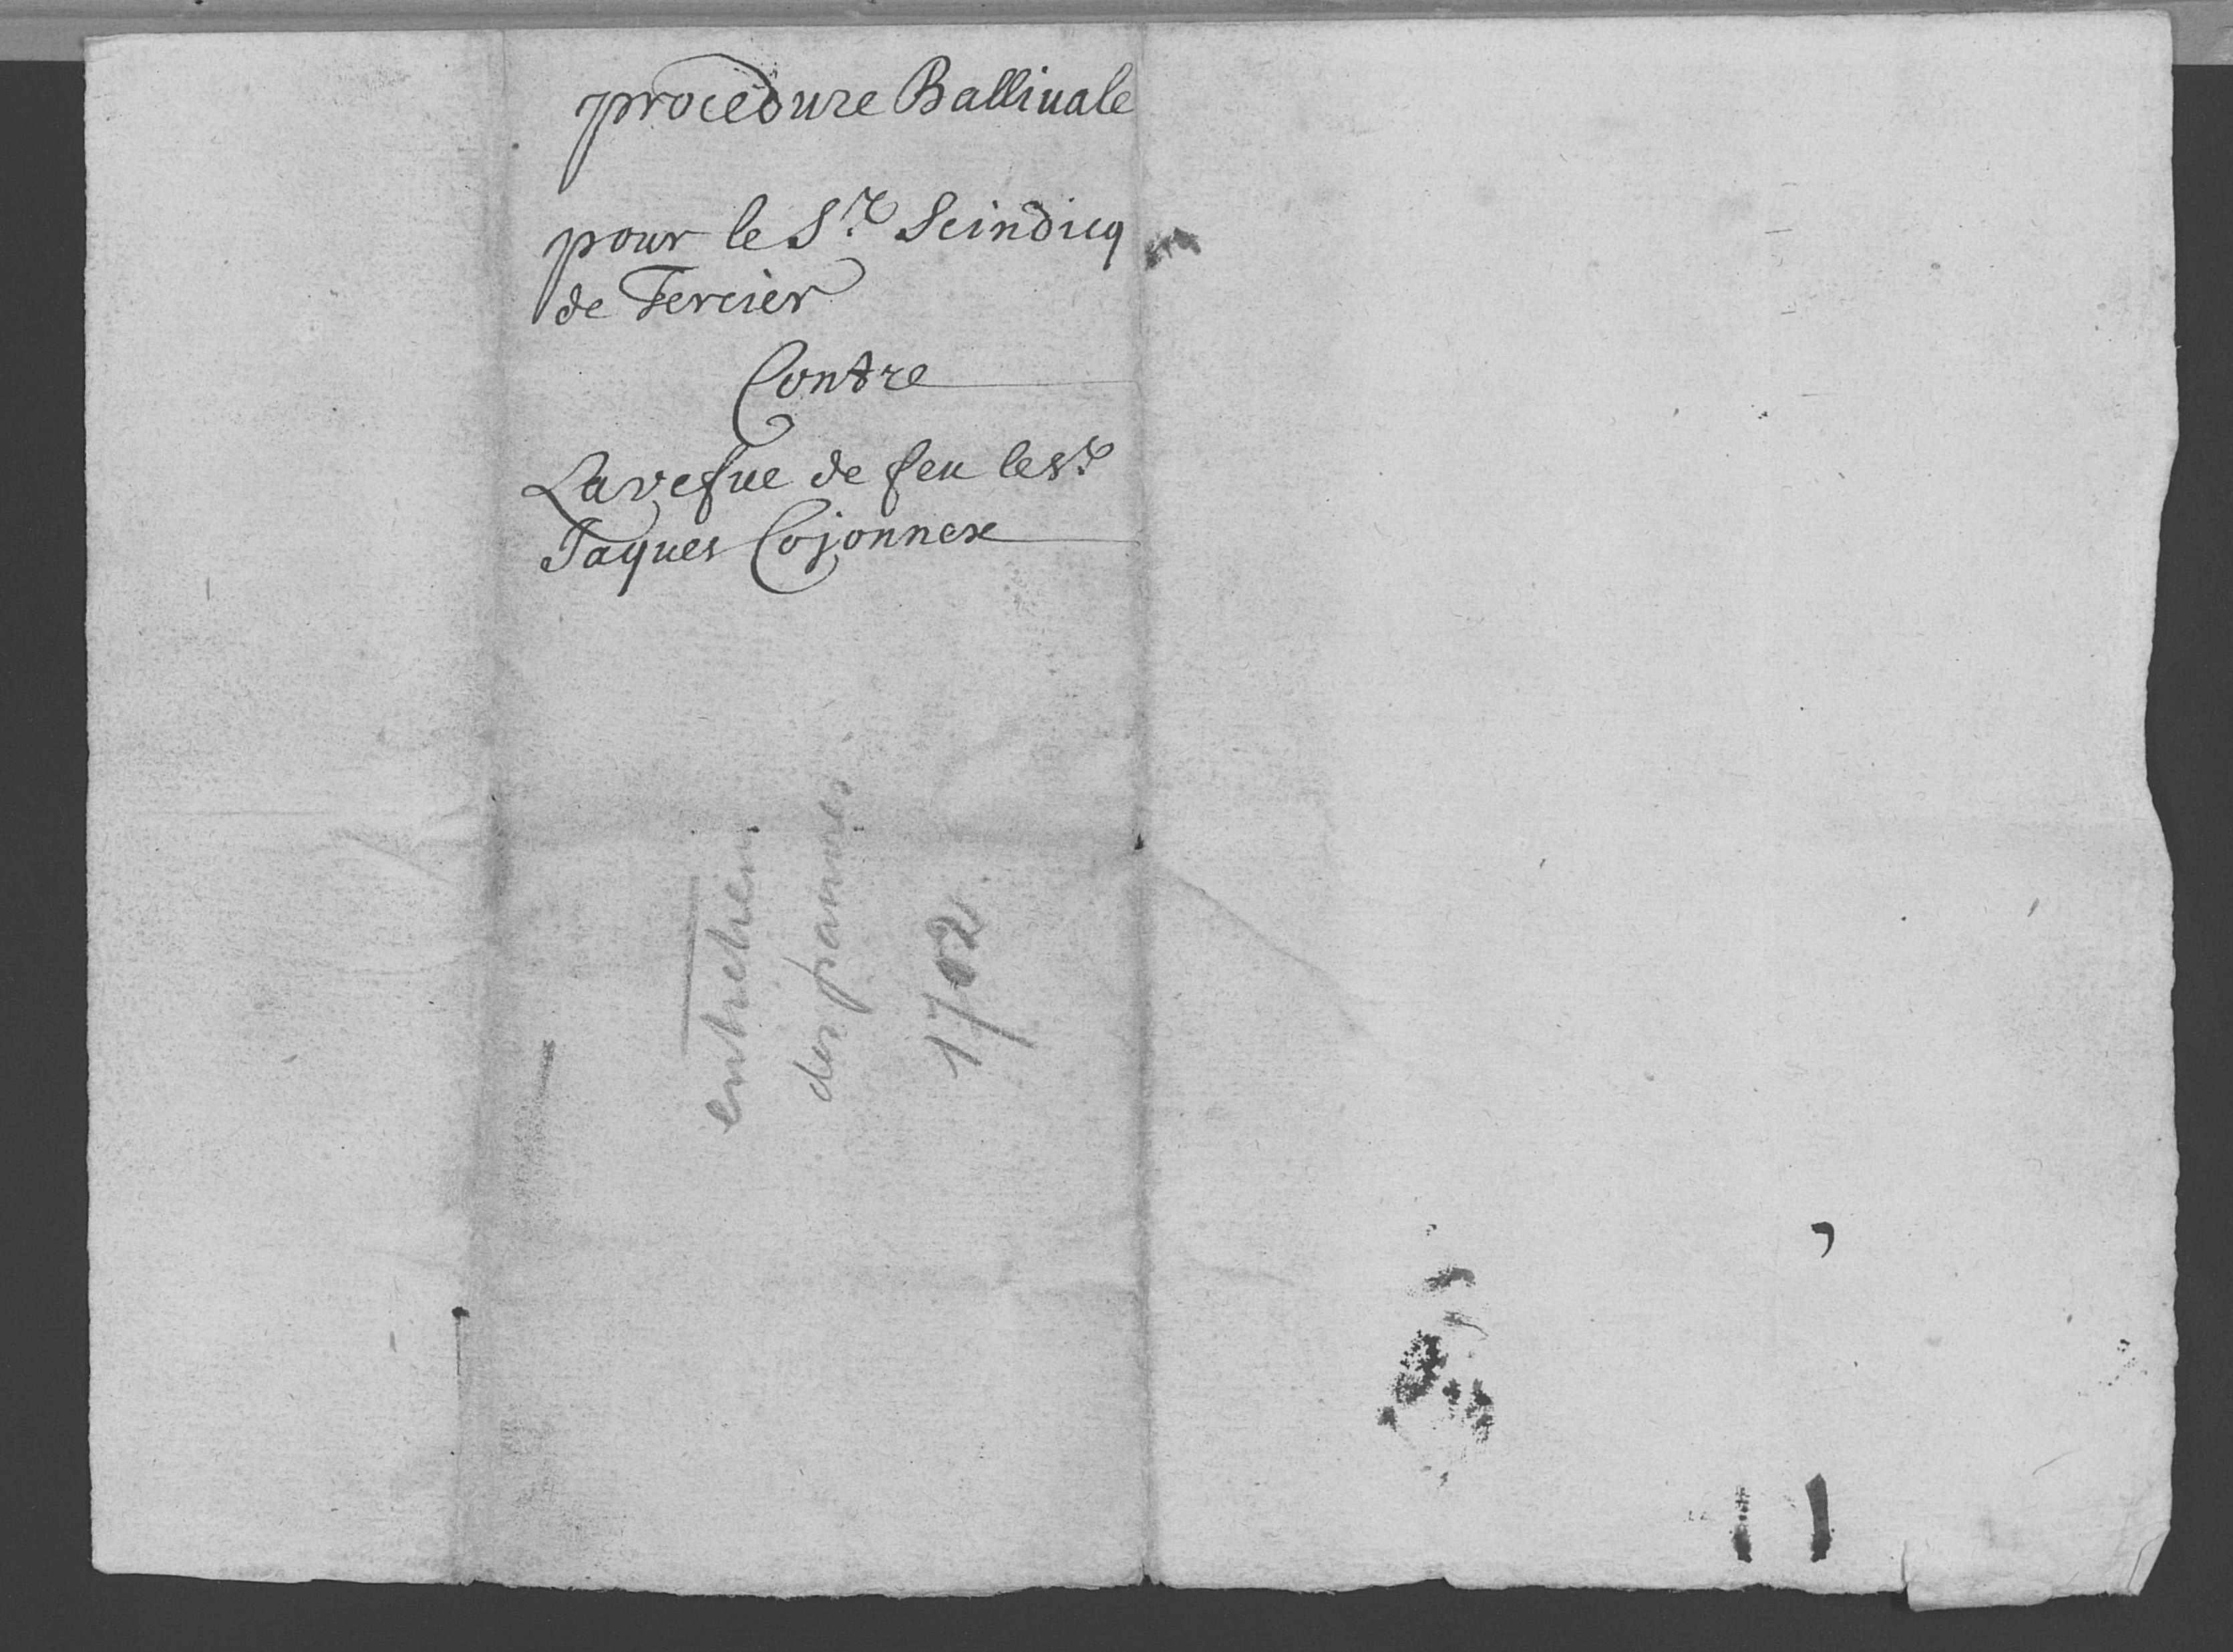 procedure Balliuale
pour le Sr. Scindicq
de Tercier
Contre
La vefue de feu le sr.
Jaques Cojonnex
entretien
des pauvres
1702